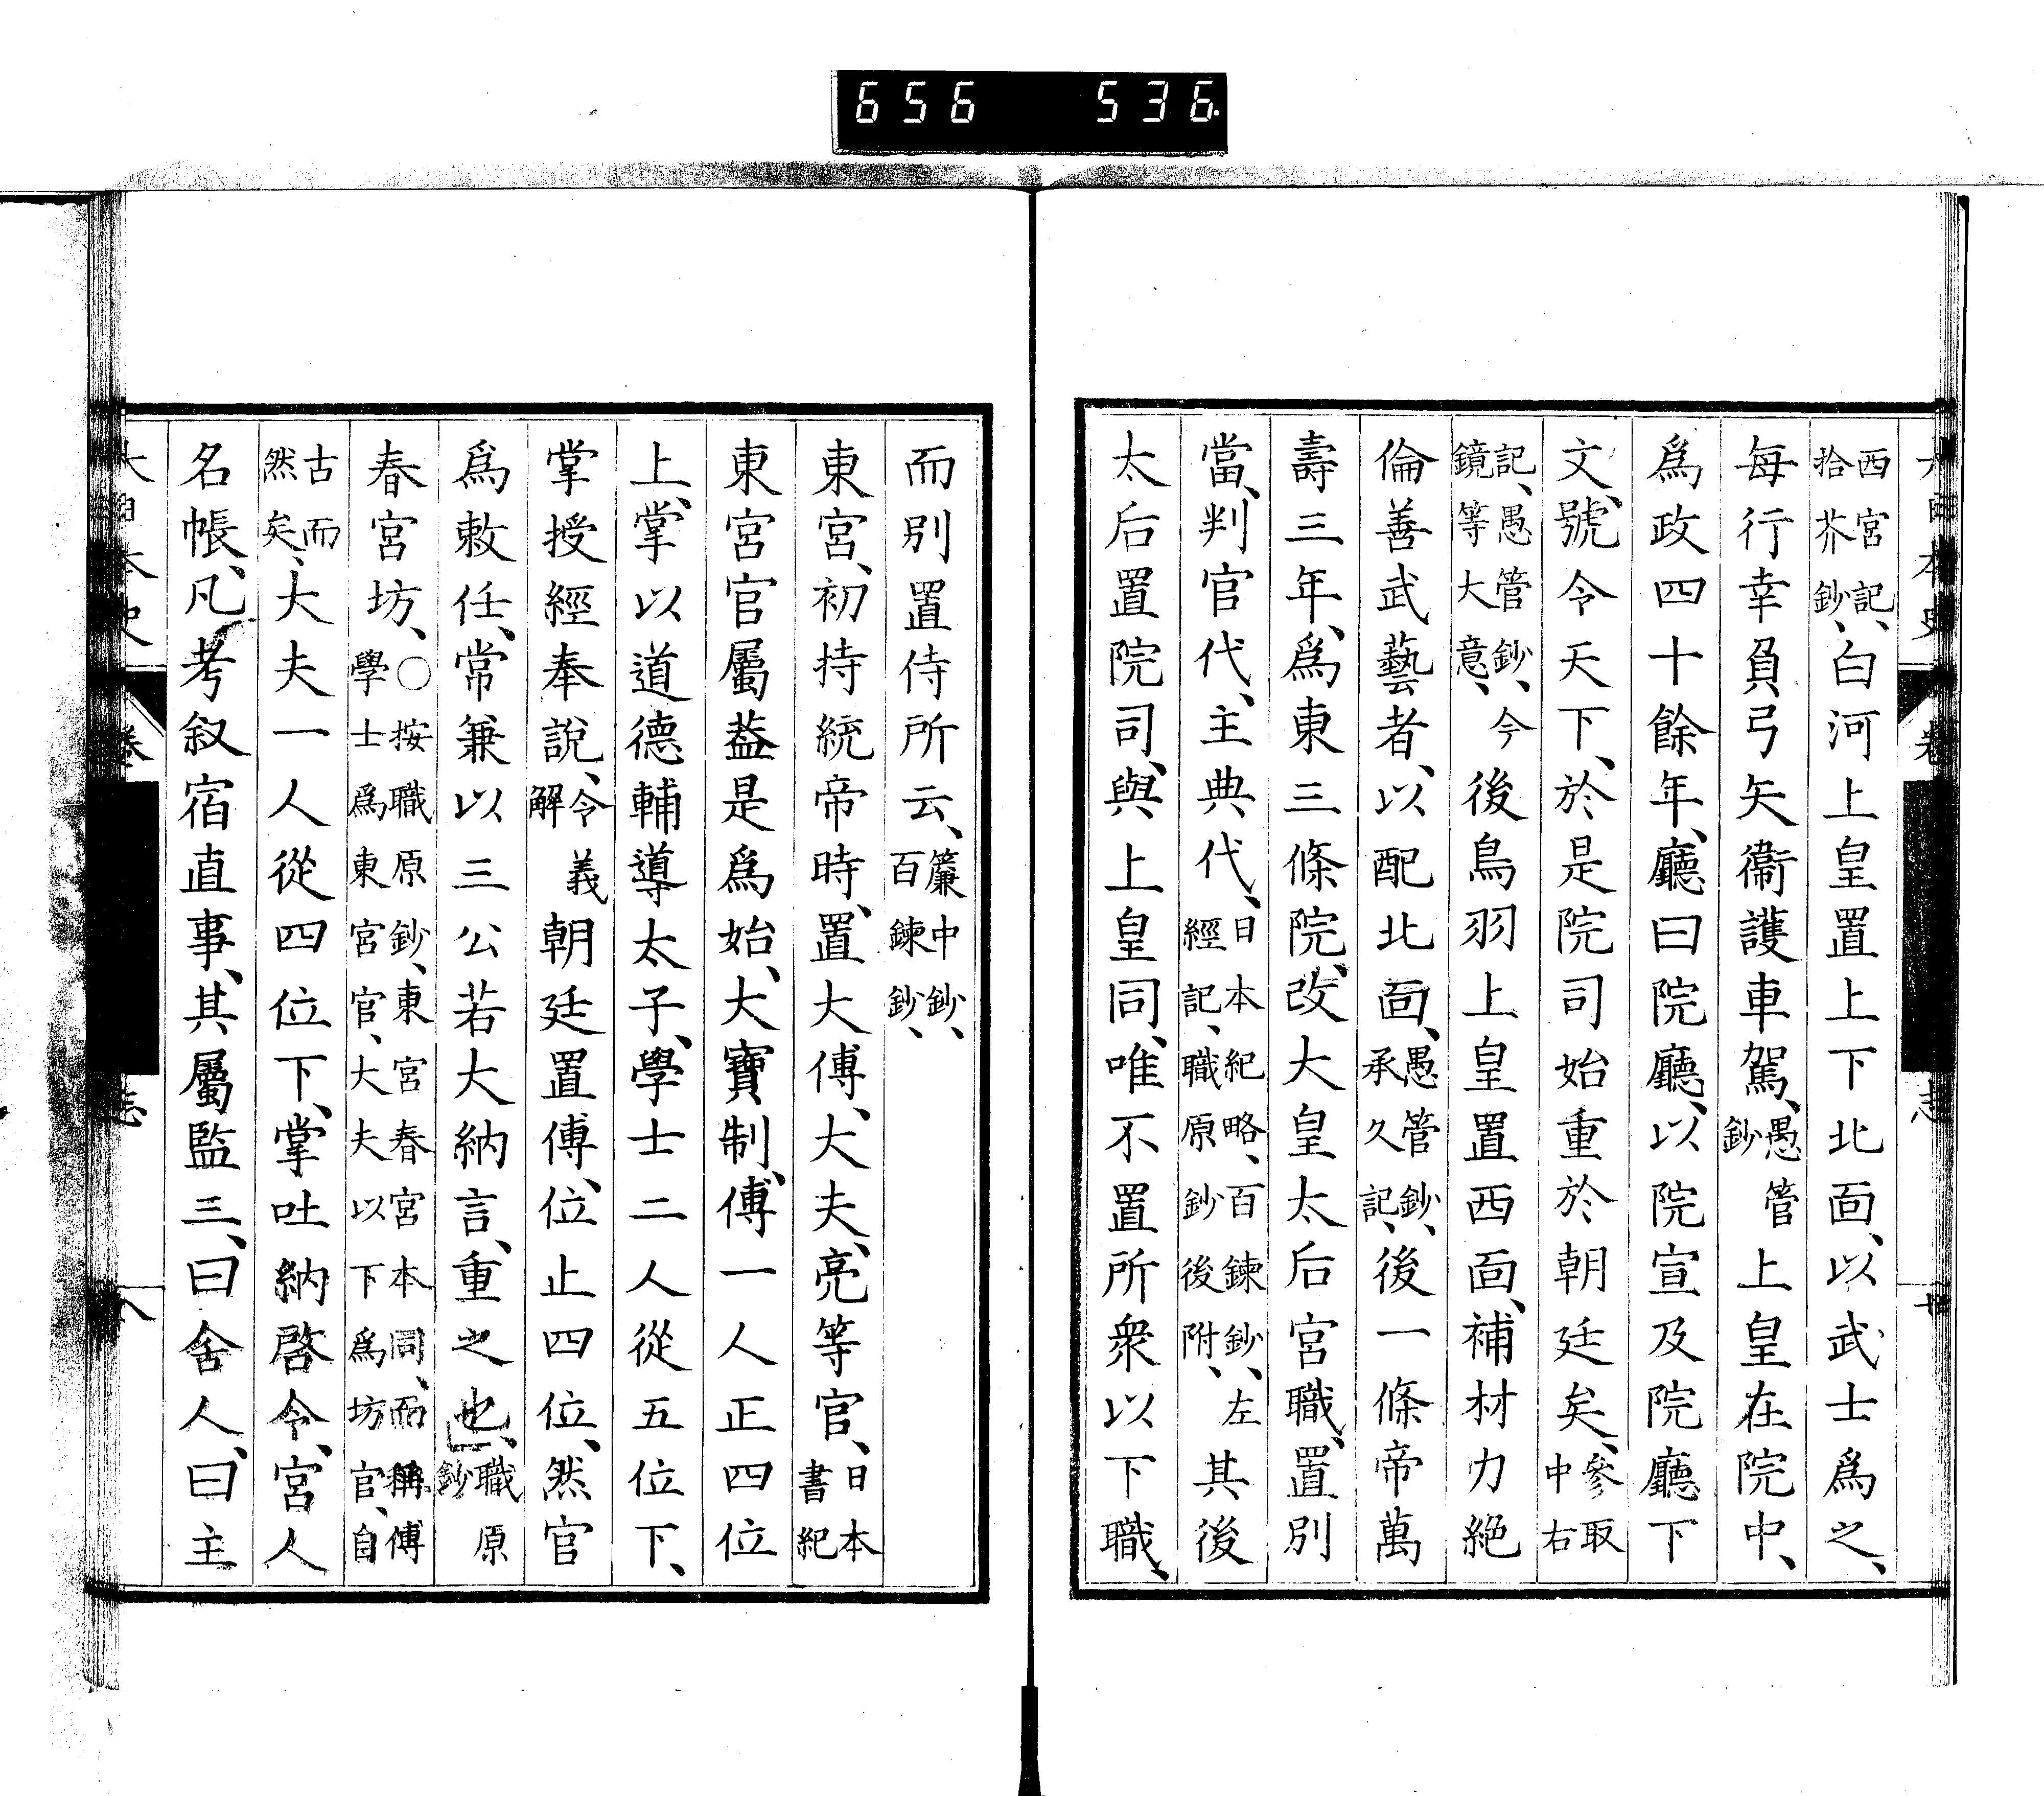 656 536
西宮記、拾芥鈔、白河上皇置上下北面、以武士爲之、
每行幸負弓矢衞護車駕、愚管鈔上皇在院中、
爲政四十餘年、廳曰院廳、以院宣及院廳下
文、號令天下、於是院司始重於朝廷矣、參取中右
記、愚管鈔、今鏡等大意、後鳥羽上皇置西面、補材力絶
倫善武藝者、以配北面、愚管鈔、承久記、後一條帝萬
壽三年、爲東三條院、改大皇太后宮職、置別
當、判官代、主典代、日本紀略、百鍊鈔、左經記、職原鈔後附、其後
太后置院司、與上皇同、唯不置所衆以下職、
而別置侍所云、簾中鈔、百鍊鈔、
東宮、初持統帝時、置大傅、大夫、亮等官、日本書紀
東宮官屬葢是爲始、大寶制、傅一人正四位
上、掌以道德輔導太子、學士二人從五位下、
掌授經奉說、令義解朝廷置傅、位止四位、然官
爲敕任、常兼以三公若大納言、重之也、職原鈔
春宮坊、○按職原鈔、東宮春宮本同、而稱傅學士爲東宮官、大夫以下爲坊官、自
古而然矣、大夫一人從四位下、掌吐納啓令、宮人
名帳、凡考叙宿直事、其屬監三、曰舍人、曰主
大日本史 卷 志 八